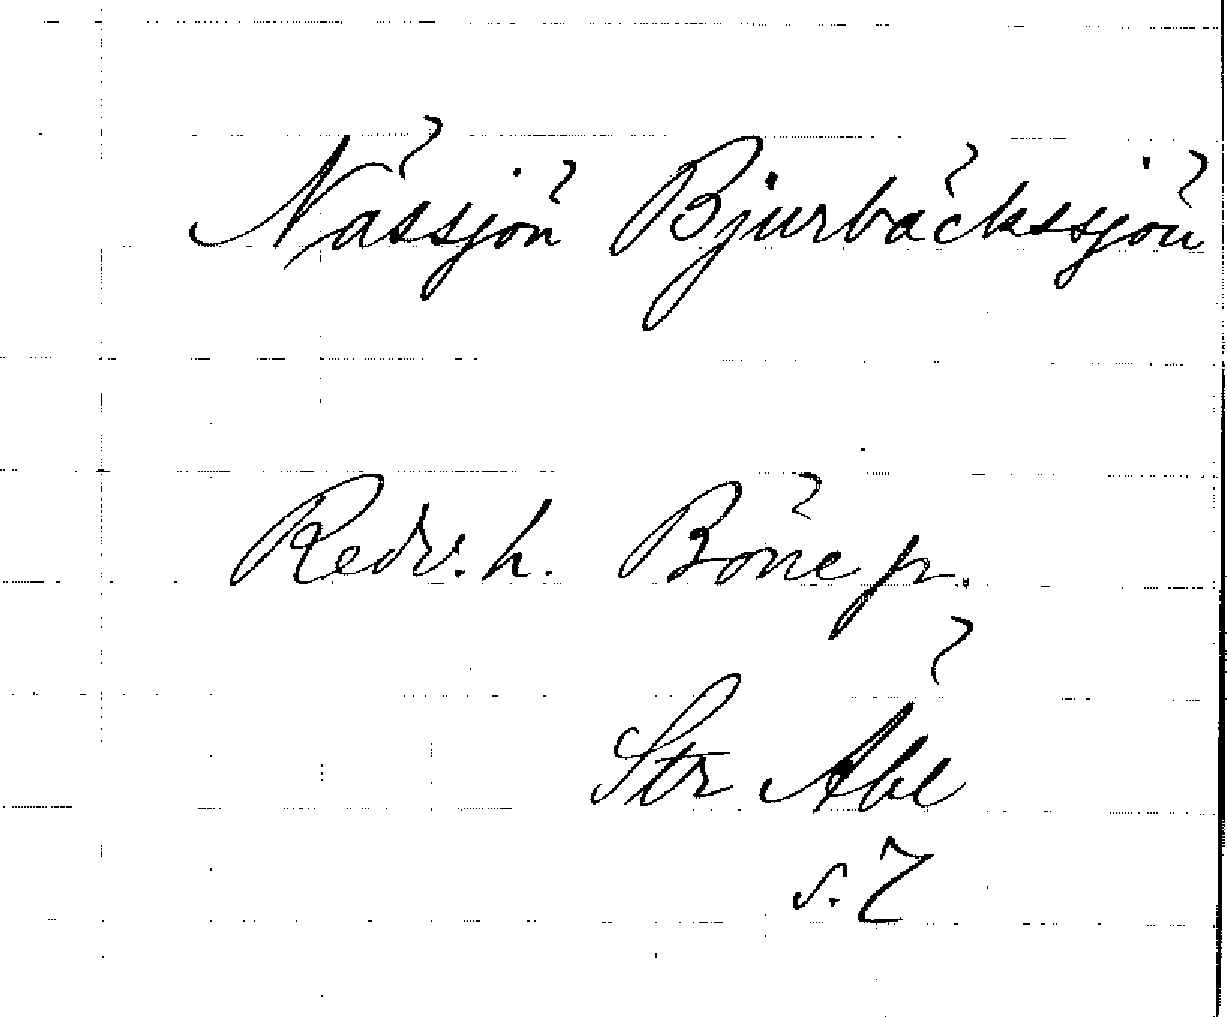 Nässjön Bjurbäckssjön
Redv. h. Böne pr.
Str
s. 7